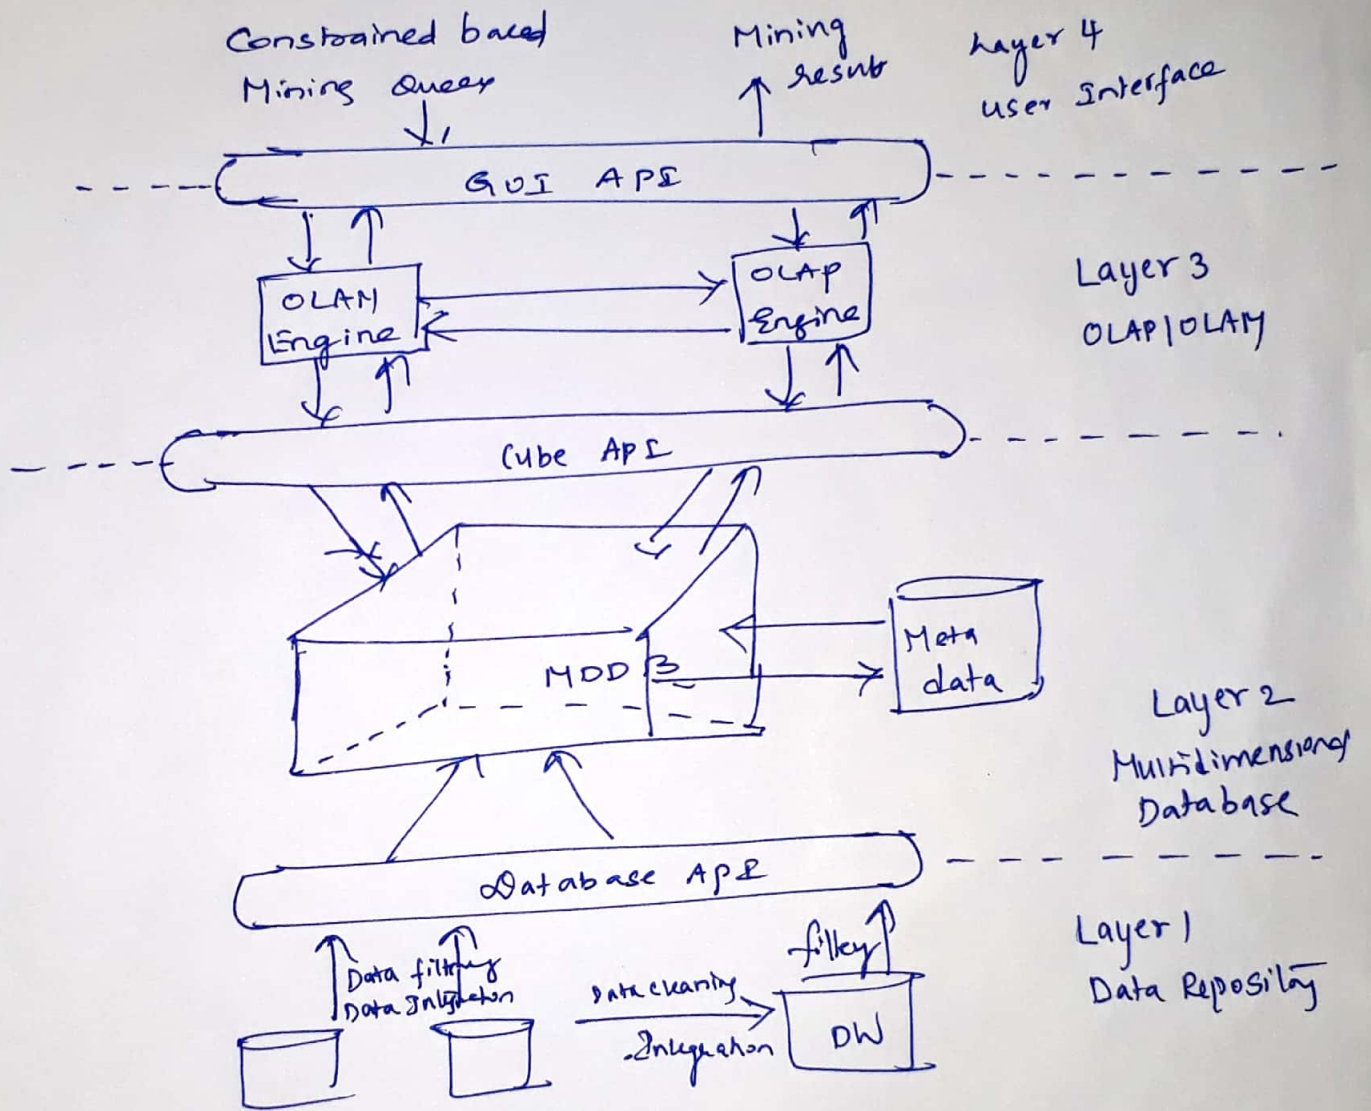 Constrained baced
Mining Queey
Mining
result
Layer 4
user Interface
GUI API
OLAM
Engine
OLAP
Engine
Layer 3
OLAP/OLAM
Cube API
MDDB
Meta
data
Layer 2
Multidimensional
Database
Database API
Layer 1
Data Repository
Data filtering
Data Integration
Data cleaning
Integration
filter
DW